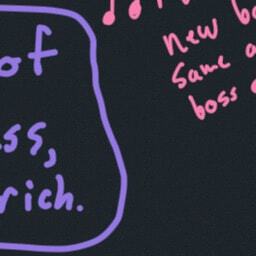 of
ss,
rich.
New b
Same a
boss